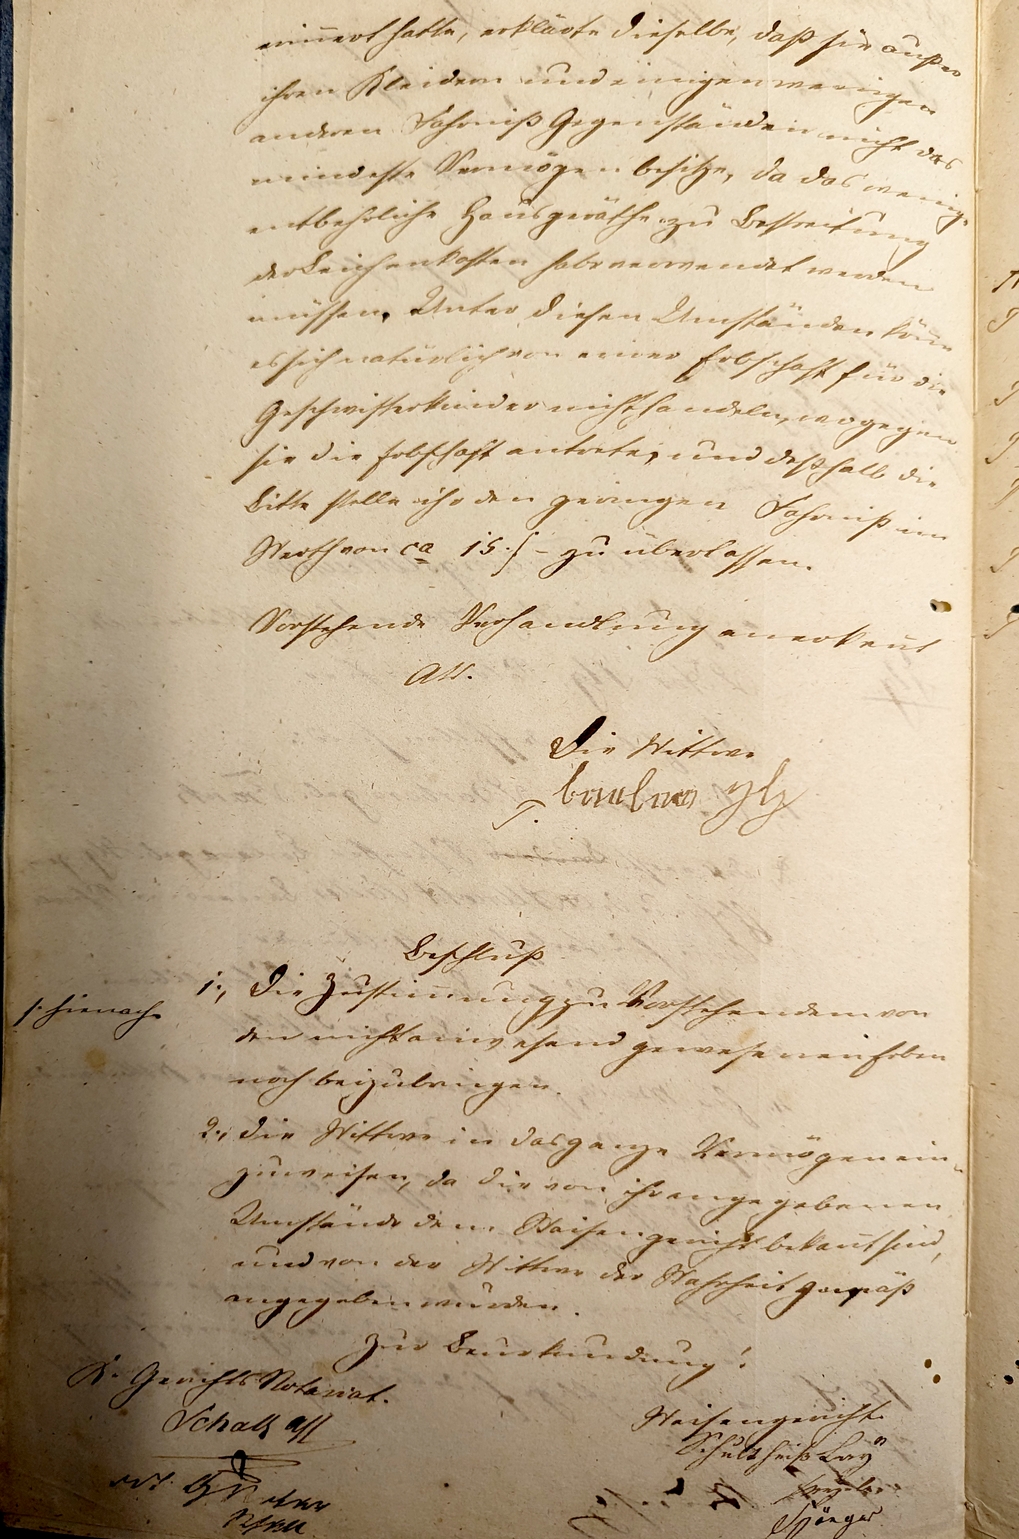 innert hatte, erklärte dieselbe, daß sie außer
ihren Kleidern und einigen wenigen
anderen Fahrniß Gegenständen nicht das
mindeste Vermögen besitze, da das wenig
entbehrliche Hausgeräthe zu Bestreitung
der Leichenkosten habe verwendet werden
müssen. Unter diesen Umständen könne
es sich natürlich von einer Erbschaft für die
Geschwisterkinder nicht handeln, wogegen
sie die Erbschaft antrete, und deßhalb die
Bitte stelle ihr den geringen Fahrniß im
Werth von ca 15 f – zu überlassen.
Vorstehende Verhandlung anerkent
Die Wittwe
Beschluß
1., Die Zustimmung zu Vorstehendem von
s. hienach
den nicht anwesend gewesenen Erben
noch beizubringen.
2., die Wittwe in das ganze Vermögen ein-
zuweisen, da die von ihr angegebenen
Umstände dem Waisengericht bekant sind,
und von der Wittwe der Wahrheit gemäß
angegeben wurden.
Zur Beurkundung!
K. Gerichts Notariat.
Waisengericht.
Schultheiß